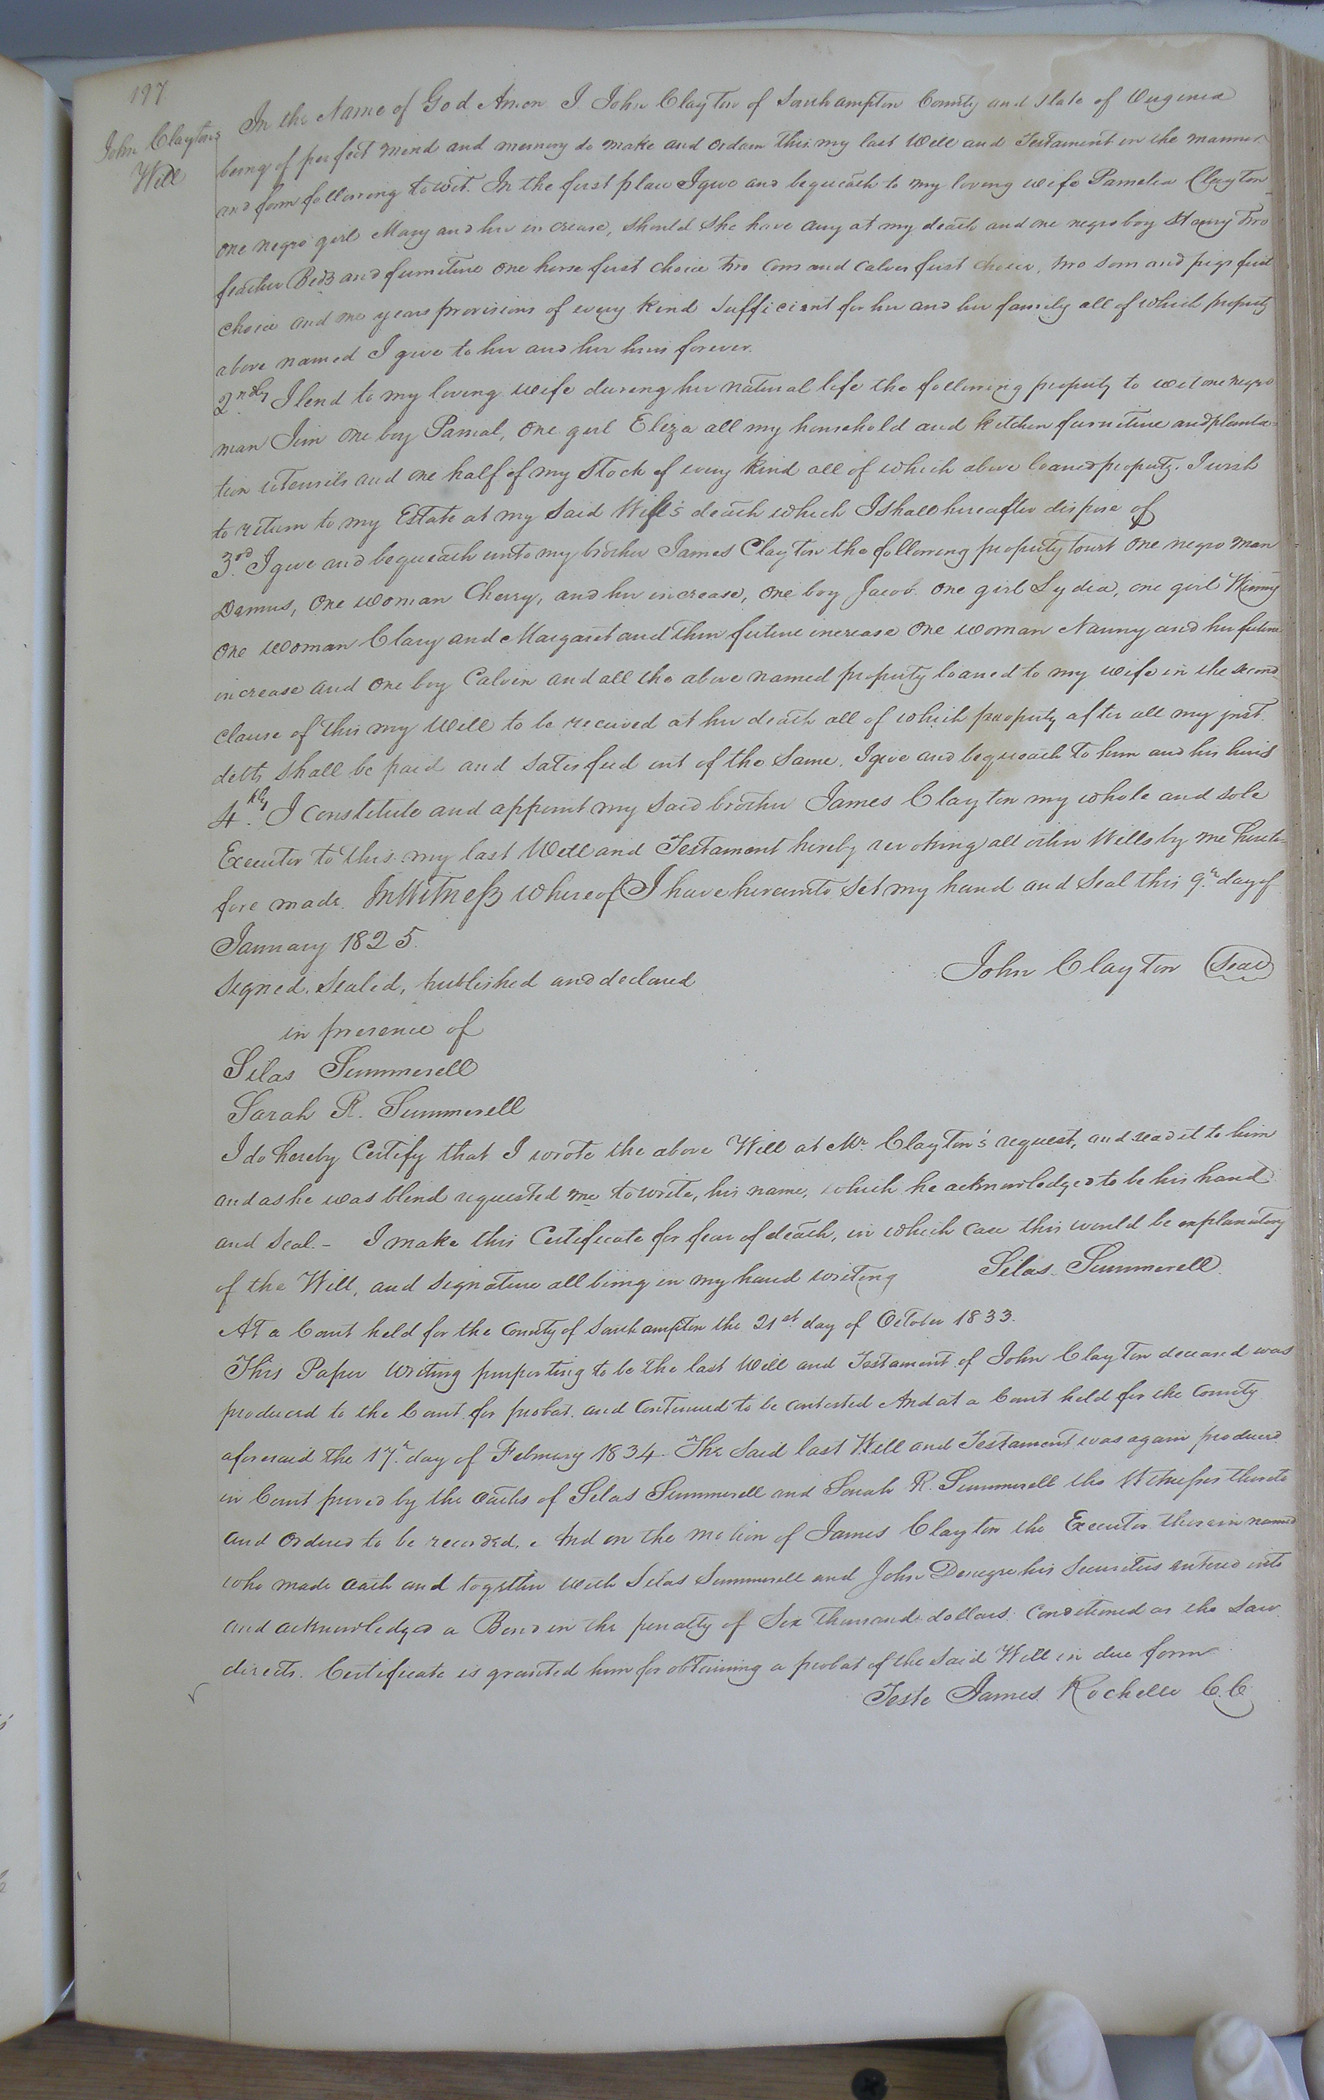 197
John Claytons
Will
In the Name of God Amen I John Clayton of Southampton County and State of Virginia
being of perfect mind and memory do make and ordain this my last Will and Testament in the manner
and form following towit. In the first place I give and bequeath to my loving wife Pamelia Clayton
one negro girl Mary and her increase, should she have any at my death and one negro boy Henry two
feather Beds and furniture one horse first choice two cows and calves first choice, two sows and pigs first
choice and one years provisions of every kind sufficient for her and her family all of which property
above named I give to her and her heirs forever.
2ndly I lend to my loving wife during her natural life the following property to wit one negro
man Jim one boy one girl Eliza all my household and kitchen furniture and planta-
tion utensils and one half of my Stock of every kind all of which above loaned property. I wish
to return to my Estate at my said Wife's death which I shall hereafter dispose of
3rd. I give and bequeath unto my brother James Clayton the following property towit one negro man
one woman Cherry, and her increase, one boy Jacob one girl Lydia, one girl Winny
one woman Clary and Margaret and their future increase one woman Nanny and her future
increase and one boy Calvin and all the above named property loaned to my wife in the second
clause of this my Will to be received at her death all of which property after all my just
debts shall be paid and satisfied out of the same. I give and bequeath to him and his heirs
4thly. I constitute and appoint my said brother James Clayton my whole and sole
Executor to this my last Will and Testament hereby revoking all other Wills by me hereto-
fore made. In Witness whereof I have hereunto set my hand and seal this 9th day of
January 1825.
John Clayton (Seal)
Signed, Sealed, published and declared
in presence of
Silas Summerell
Sarah R. Summerell
I do hereby Certify that I wrote the above Will at Mr. Clayton's request, and read it to him
and as he was blind requested me to write, his name, which he acknowledged to be his hand
and Seal. - I make this Certificate for fear of death, in which case this would be explanatory
of the Will, and signature all being in my hand writing Silas Summerell
At a Court held for the County of Southampton the 21st day of October 1833.
This Paper Writing purporting to be the last Will and Testament of John Clayton deceased was
produced to the Court for probat. and continued to be contested And at a Court held for the County
aforesaid the 17th day of February 1834 The said last Will and Testament was again produced
in Court proved by the oaths of Silas Summerell and Sarah R. Summerell the Witnesses thereto
and ordered to be recorded. And on the motion of James Clayton the Executor therein named
who made oath and together with Silas Summerell and John his Securities entered into
and acknowledged a Bond in the penalty of Six thousand dollars conditioned as the Law
directs. Certificate is granted him for obtaining a probat of the said Will in due form
Teste James Rochelle C.C.